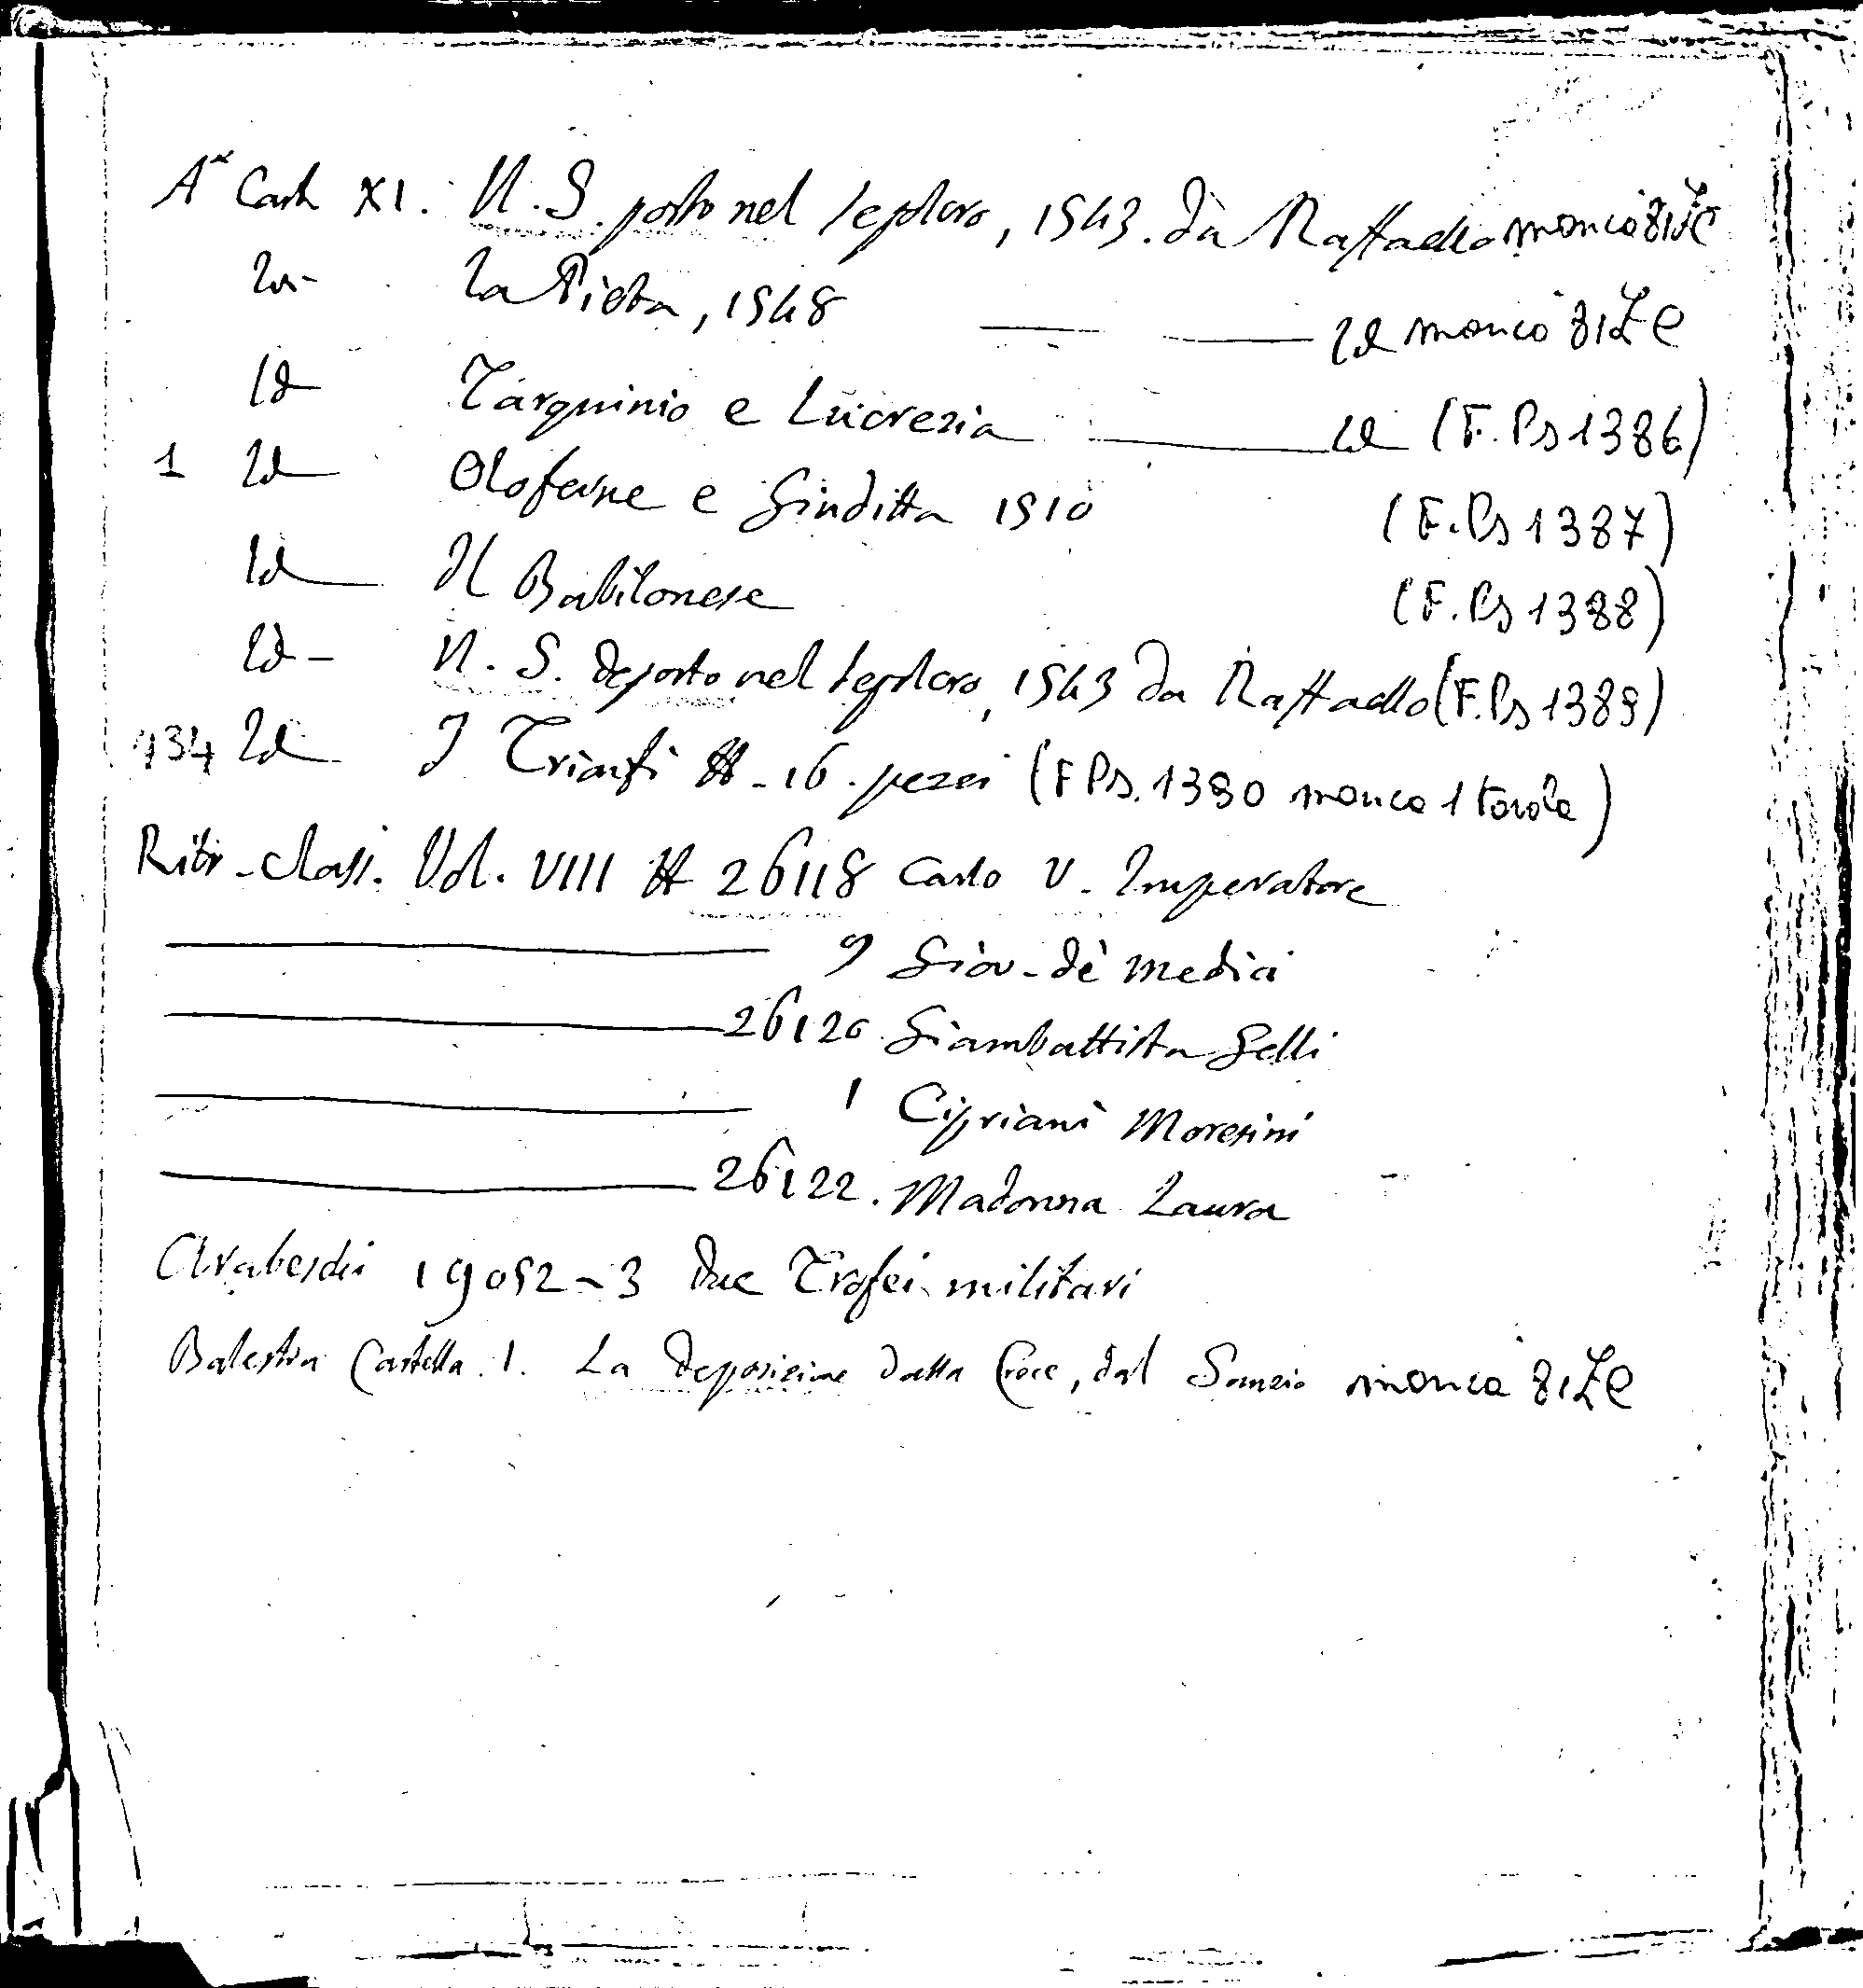 A* Cart XI. N.S. posto nel sepolcro, 1543. da Raffaello manca
Id- La Pietà, 1548 — — Id manca
Id Tarquinio e Lucrezia — Id (F. Ps 1386)
1 Id Oloferne e Giuditta 1510 (F. Ps 1387)
Id — Il Babilonese (F. Ps 1388)
Id - N. S. deposto nel sepolcro, 1543 da Raffaello (F. Ps 1389)
434 Id I Trionfi # - 16. pezzi (F Ps. 1390 manca 1 tavola)
Ritr - Class. Vol. VIII # 26118 Carlo V. Imperatore
— 9 Giov. de' Medici
— 26120 Giambattista Gelli
— 1 Cipriani Moresini
— 26122. Madonna Laura
Arabeschi 19052-3 Due Trofei militari
Balestra Cartella. 1. La Deposizione dalla Croce, dal Sanzio manca